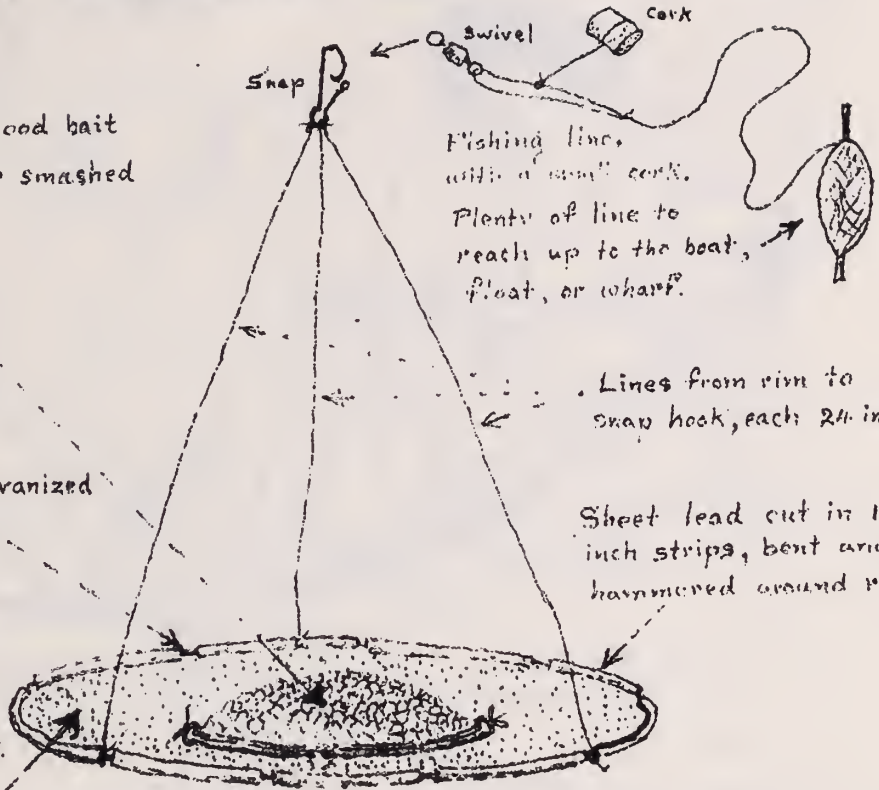 Cork
swivel
Snap
ood bait
smashed
Fishing line,
with a small cork.
Plenty of line to
reach up to the boat,
float, or wharf.
Lines from rim to
snap hook, each 24 in
vanized
Sheet lead cut in 1
inch strips, bent and
hammered around r